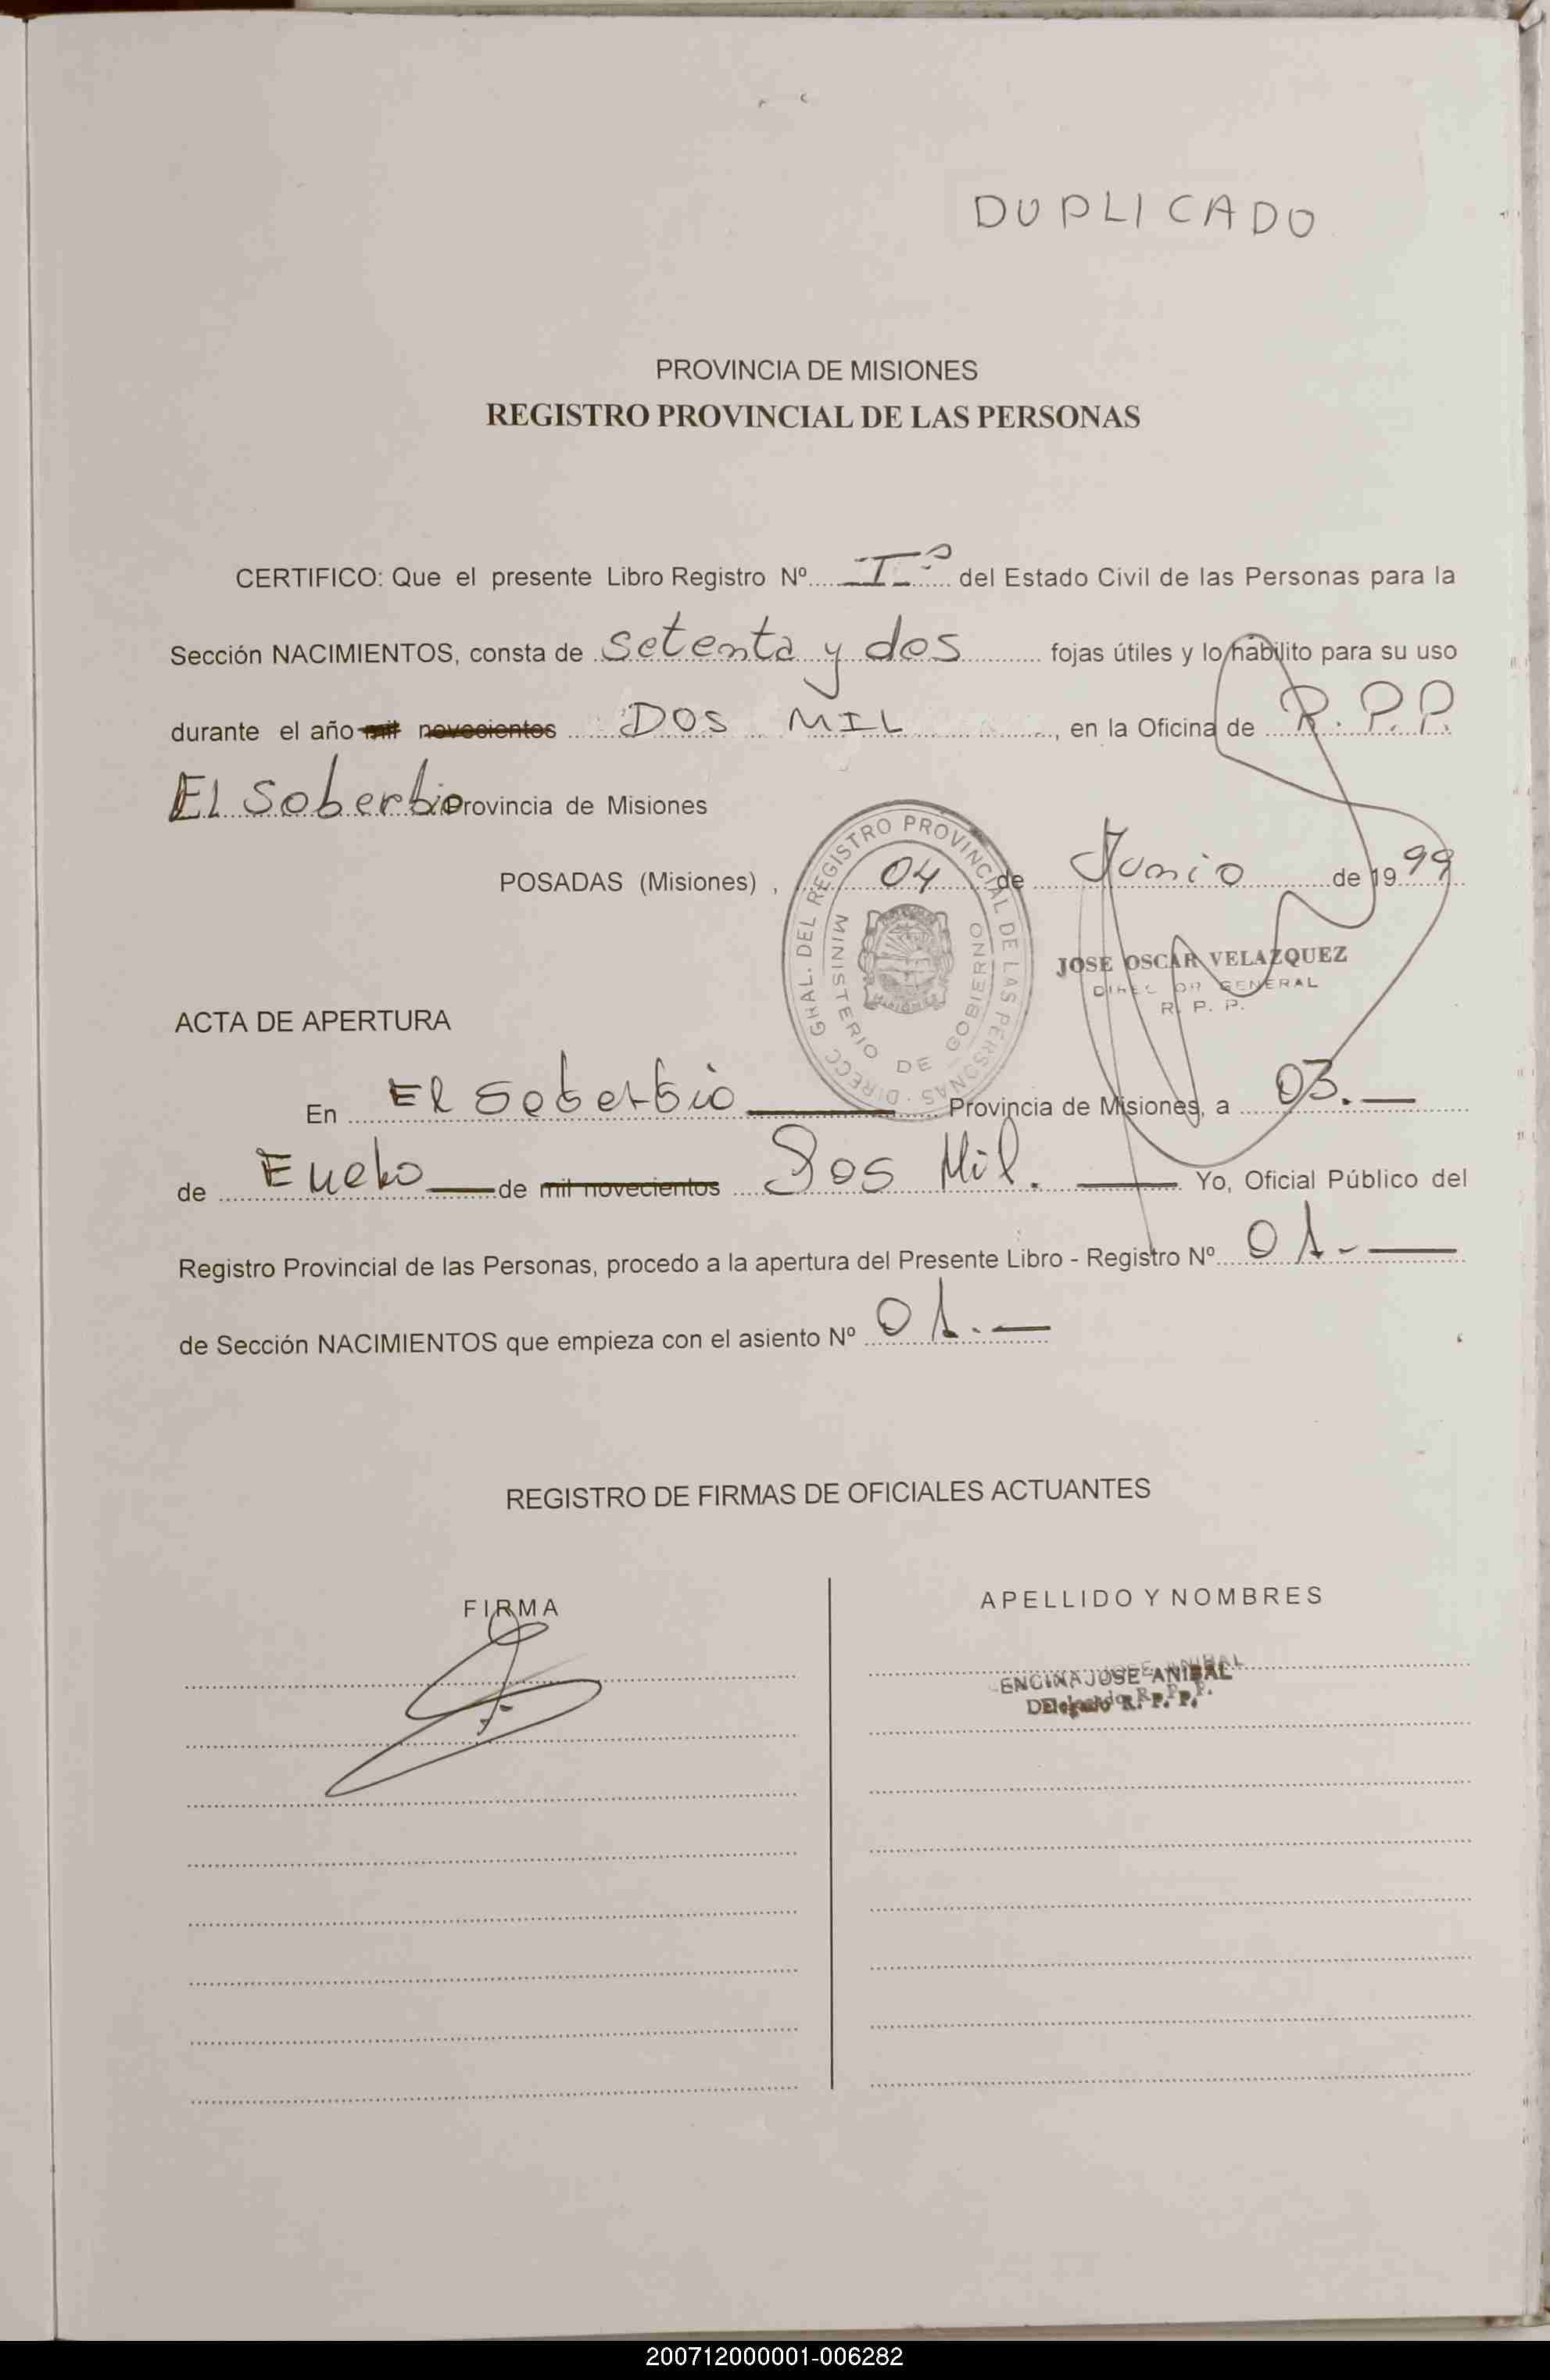 DUPLICADO
PROVINCIA DE MISIONES
REGISTRO PROVINCIAL DE LAS PERSONAS
CERTIFICO: Que el presente Libro Registro Nº I º del Estado Civil de las Personas para la
Sección NACIMIENTOS, consta de setenta y dos fojas útiles y lo habilito para su uso
durante el año mil novecientos DOS MIL, en la Oficina de R.P.P.
El Soberbio Provincia de Misiones
POSADAS (Misiones), 04 de Junio de 1999
DIRECC. GRAL. DEL REGISTRO PROVINCIAL DE LAS PERSONAS
MINISTERIO DE GOBIERNO
JOSE OSCAR VELAZQUEZ
DIRECTOR GENERAL
R. P. P.
ACTA DE APERTURA
En El Soberbio Provincia de Misiones, a 03.
de Enero de mil novecientos Dos Mil. Yo, Oficial Público del
Registro Provincial de las Personas, procedo a la apertura del Presente Libro - Registro Nº 01.-
de Sección NACIMIENTOS que empieza con el asiento Nº 01.
REGISTRO DE FIRMAS DE OFICIALES ACTUANTES
FIRMA
APELLIDO Y NOMBRES
ENCINA JOSE ANIBAL
Delegado R.P.P.
200712000001-006282